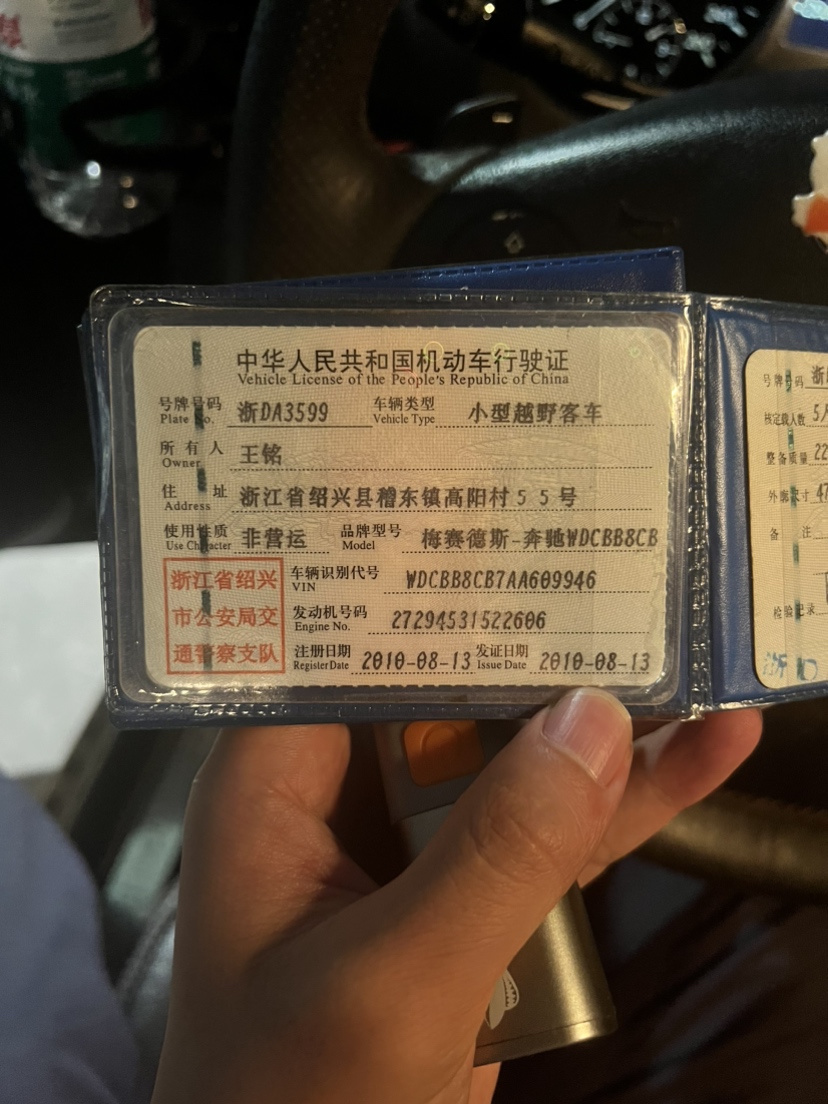 中华人民共和国机动车行驶证
Vehicle License of the People's Republic of China
号牌号码 浙DA3599 车辆类型 小型越野客车
Plate No. Vehicle Type
所有人 王铭
Owner
住址 浙江省绍兴县稽东镇高阳村55号
Address
使用性质 非营运 品牌型号 梅赛德斯-奔驰WDCBB8CB
Use Character Model
浙江省绍兴
市公安局交
通警察支队
车辆识别代号 WDCBB8CB7AA609946
VIN
发动机号码 27294531522606
Engine No.
注册日期 2010-08-13 发证日期 2010-08-13
Register Date Issue Date
号牌号码 浙
核定载人数 5人
整备质量 22
外廓尺寸 47
备注
检验记录
浙